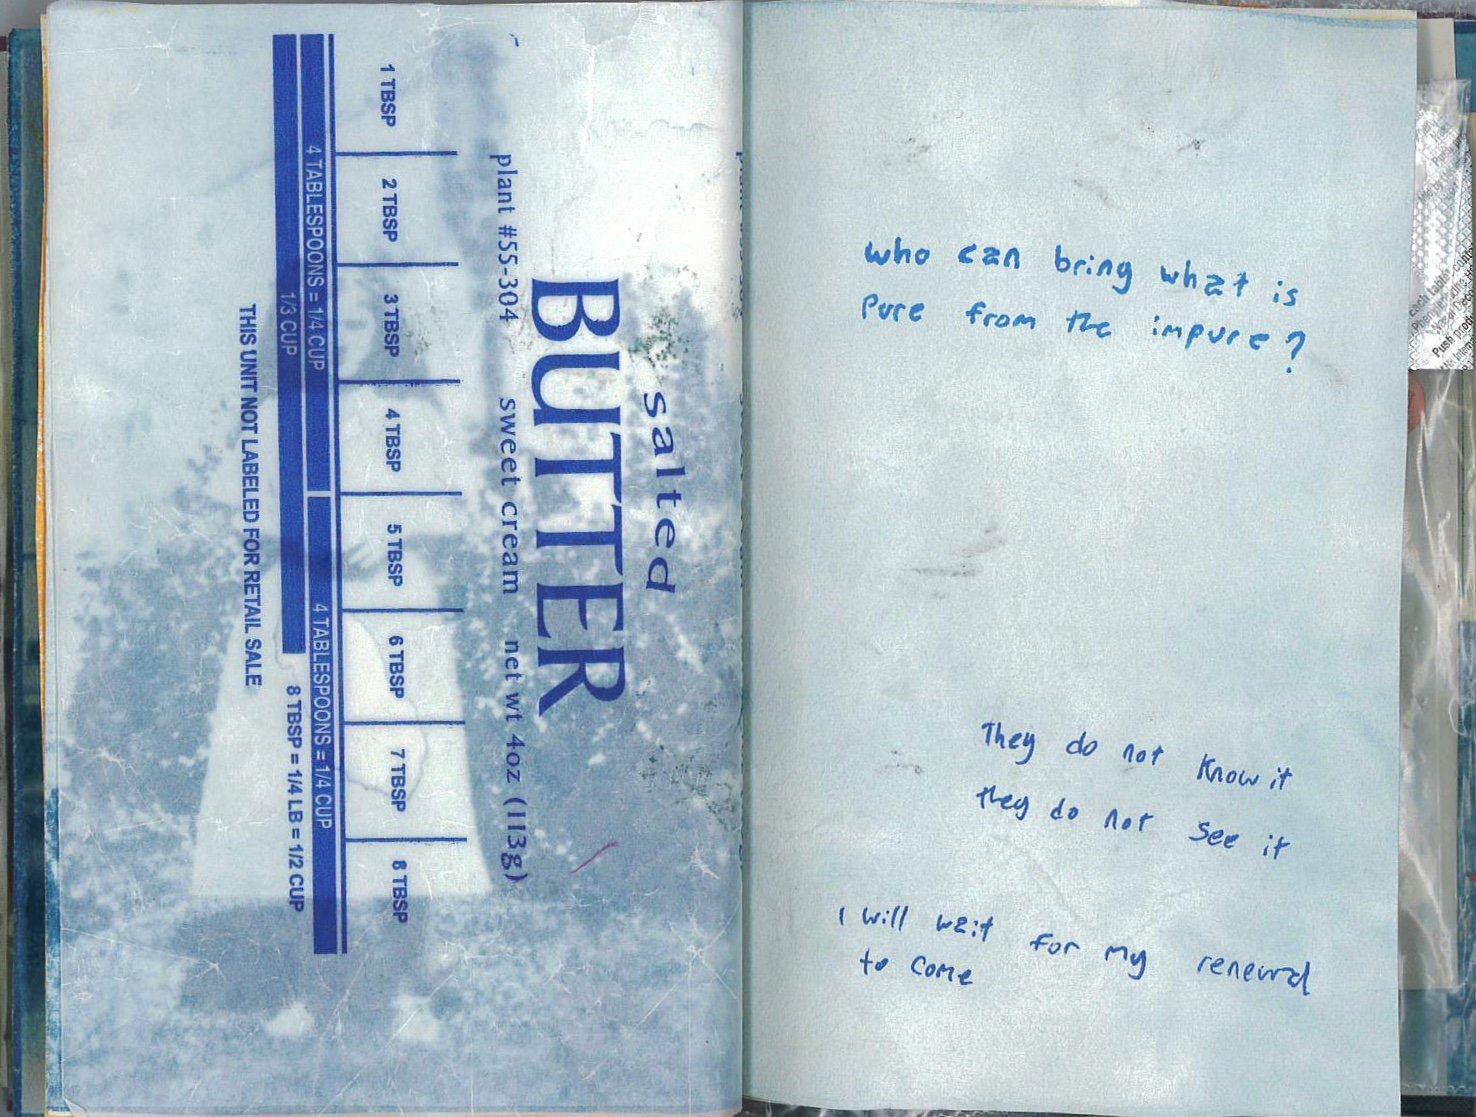 salted
BUTTER
plant #55-304 sweet cream net wt 4oz (113g)
1 TBSP
2 TBSP
3 TBSP
4 TBSP
5 TBSP
6 TBSP
7 TBSP
8 TBSP
4 TABLESPOONS = 1/4 CUP
4 TABLESPOONS = 1/4 CUP
1/3 CUP
8 TBSP = 1/4 LB = 1/2 CUP
THIS UNIT NOT LABELED FOR RETAIL SALE
who can bring what is
pure from the impure?
They do not know it
they do not see it
I will wait for my renewal
to come
each table
Push